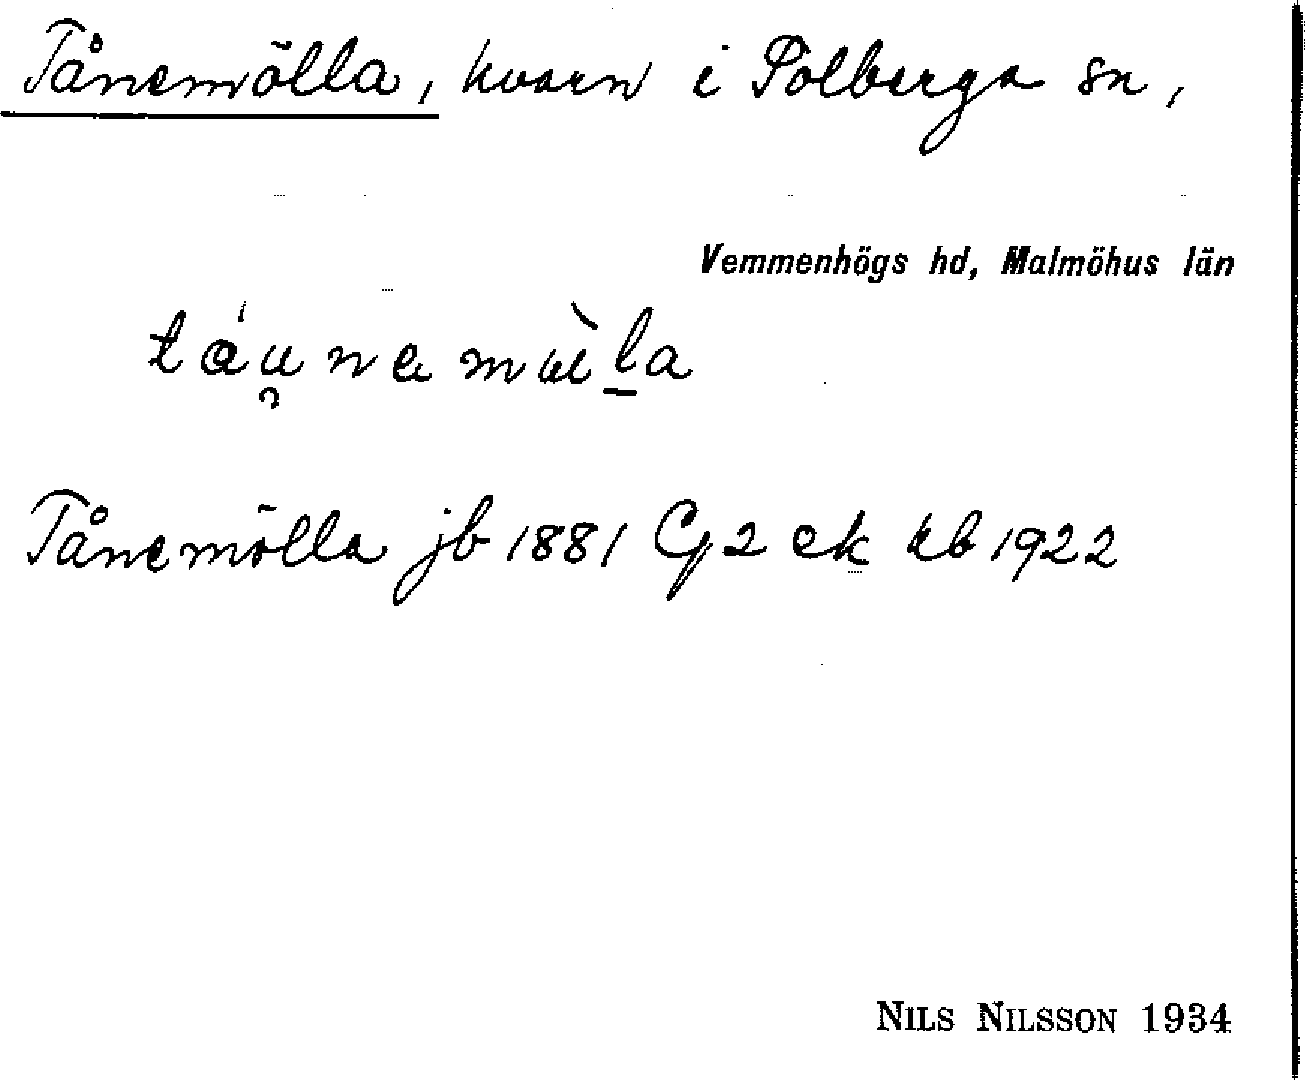 Tånemölla, kvarn i Solberga sn,
Vemmenhögs hd, Malmöhus län
Tånemölla jb 1881 Cg 2 ek kb 1922
NILS NILSSON 1934